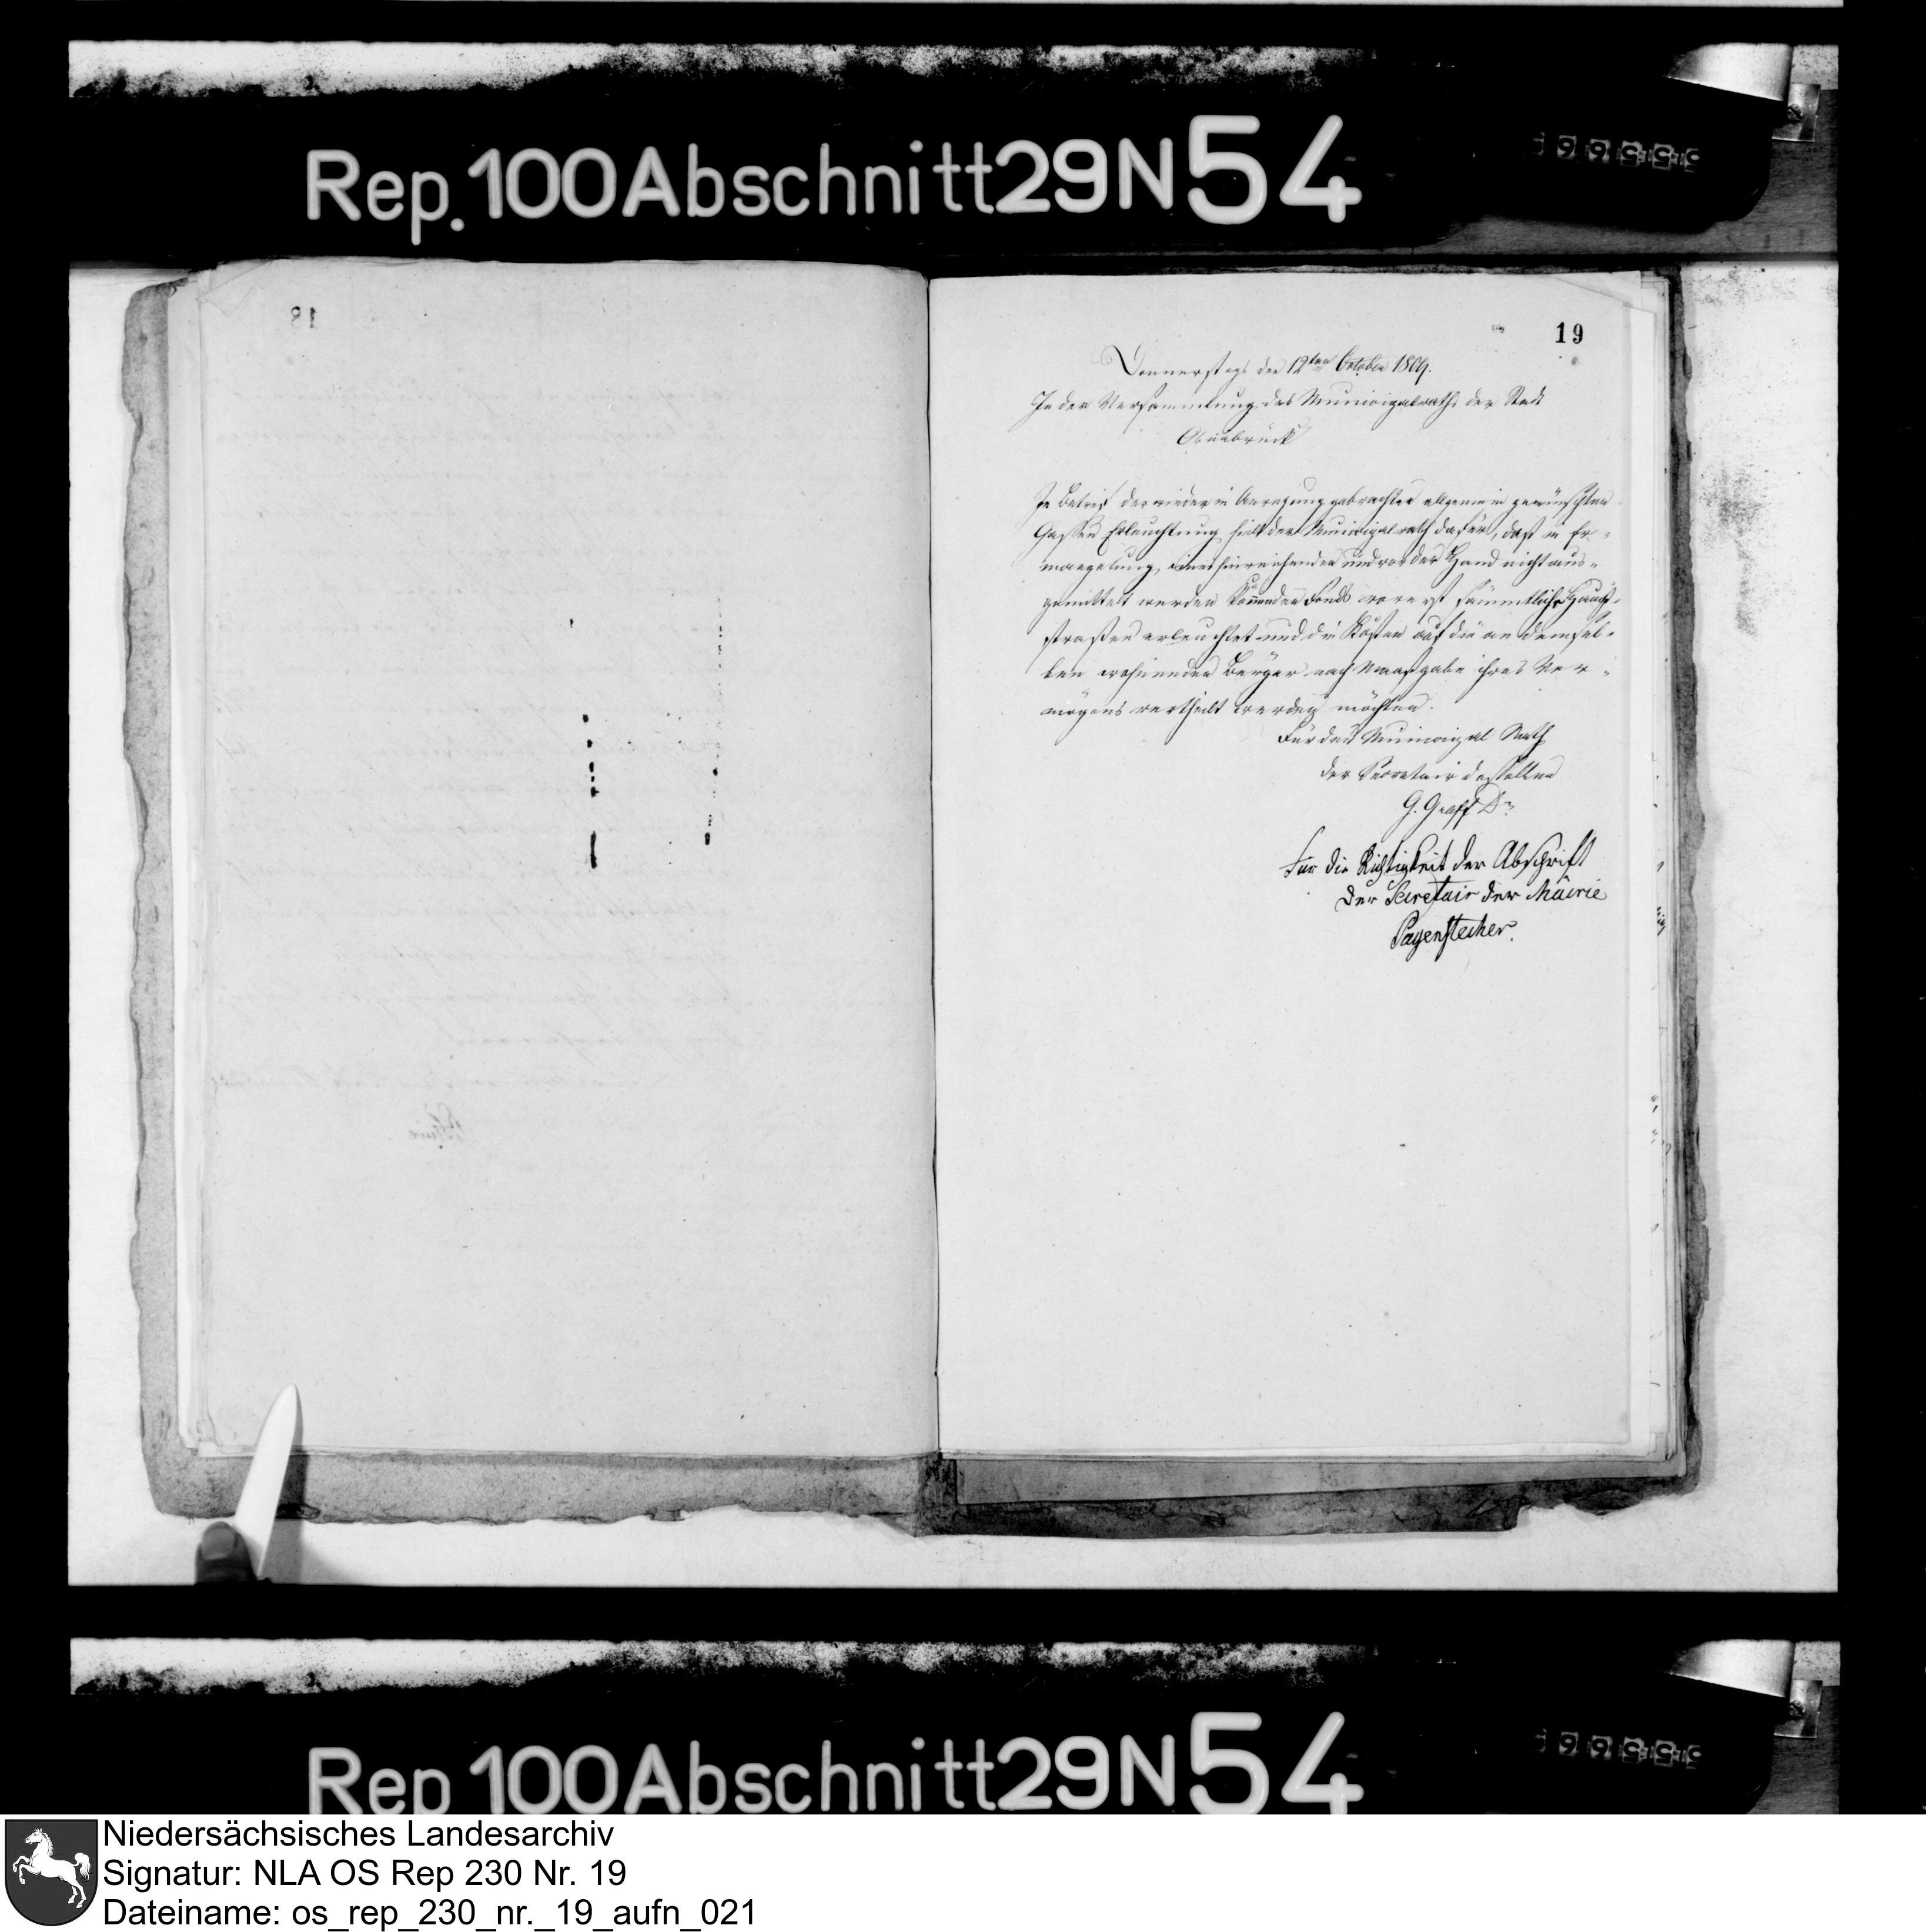 Rep. 100 Abschnitt 29 N 54
19
Donnerstags den 12ten October 1809.
In der Versammlung des Municipalraths der Stadt
Osnabrück
In Betref der wieder in Anregung gebrachten allgemein gewünschten
Gassen Erleuchtung hielt der Municipalrath dafür, daß in Er-
mangelung, eines hinreichenden und vor der Hand nicht aus-
gemittelt werden könnenden Fonds vorerst sämmtliche Haupt-
straßen erleuchtet und die Kosten auf die an denensel-
ben wohnenden Bürger nach Maasgabe ihres Ver-
mögens vertheilt werden möchten.
Für den Municipal Rath
der Secretair desselben
G. Graff Dr.
Für die Richtigkeit der Abschrift
Der Secretair der Mairie
Pagenstecher.
18
Rep 100 Abschnitt 29 N 54
Niedersächsisches Landesarchiv
Signatur: NLA OS Rep 230 Nr. 19
Dateiname: os_rep_230_nr._19_aufn_021